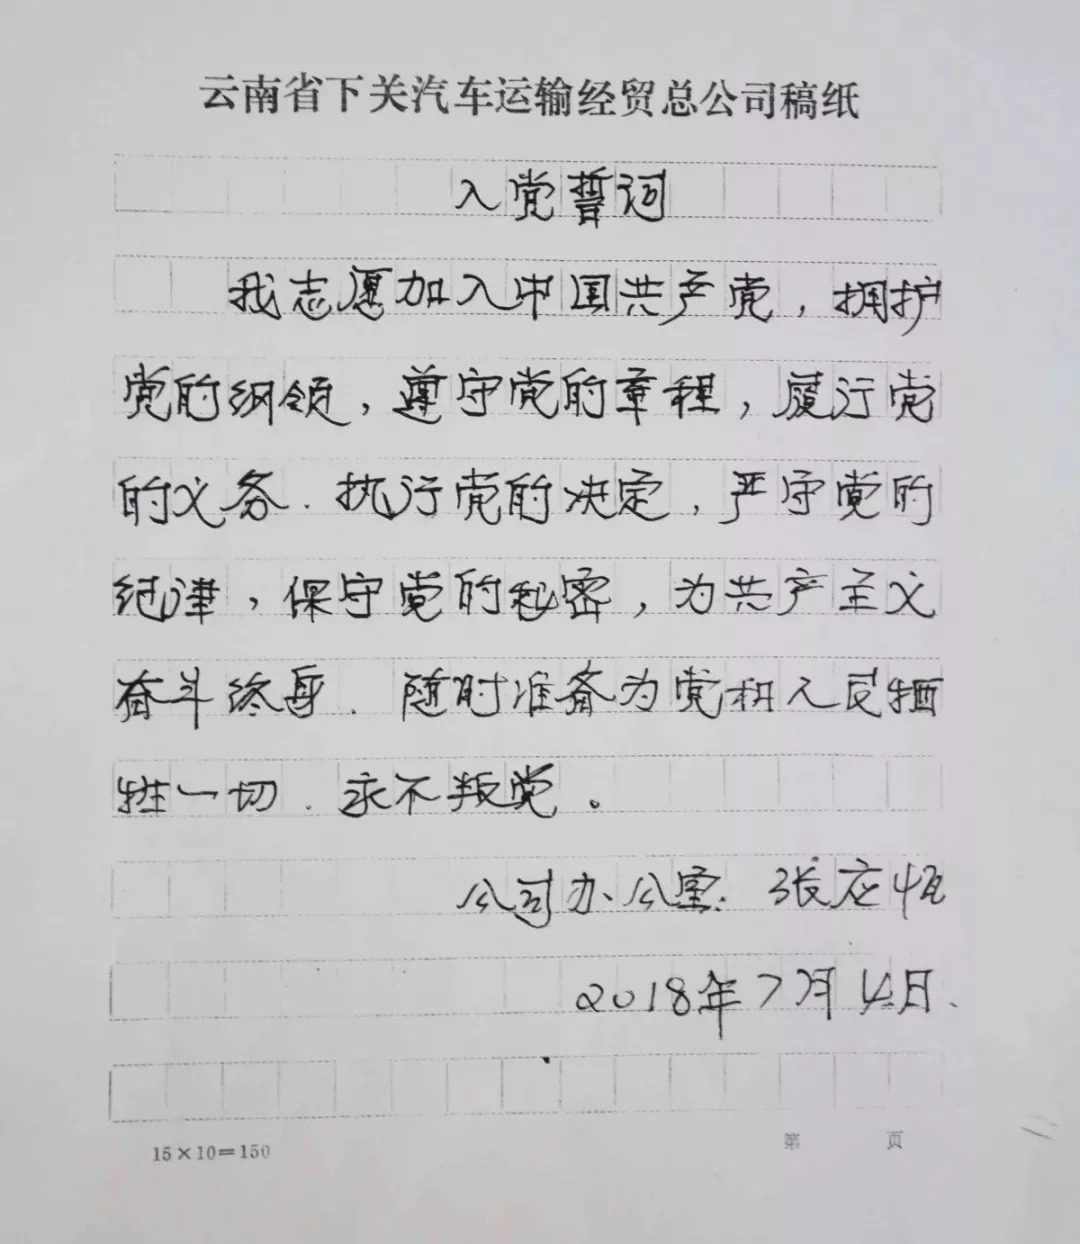 云南省下关汽车运输经贸总公司稿纸
入党誓词
我志愿加入中国共产党，拥护
党的纲领，遵守党的章程，履行党
的义务．执行党的决定，严守党的
纪律，保守党的秘密，为共产主义
奋斗终身．随时准备为党和人民牺
牲一切．永不叛党。
公司办公室．张应恒
2018年7月4日．
15×10=150
第 页